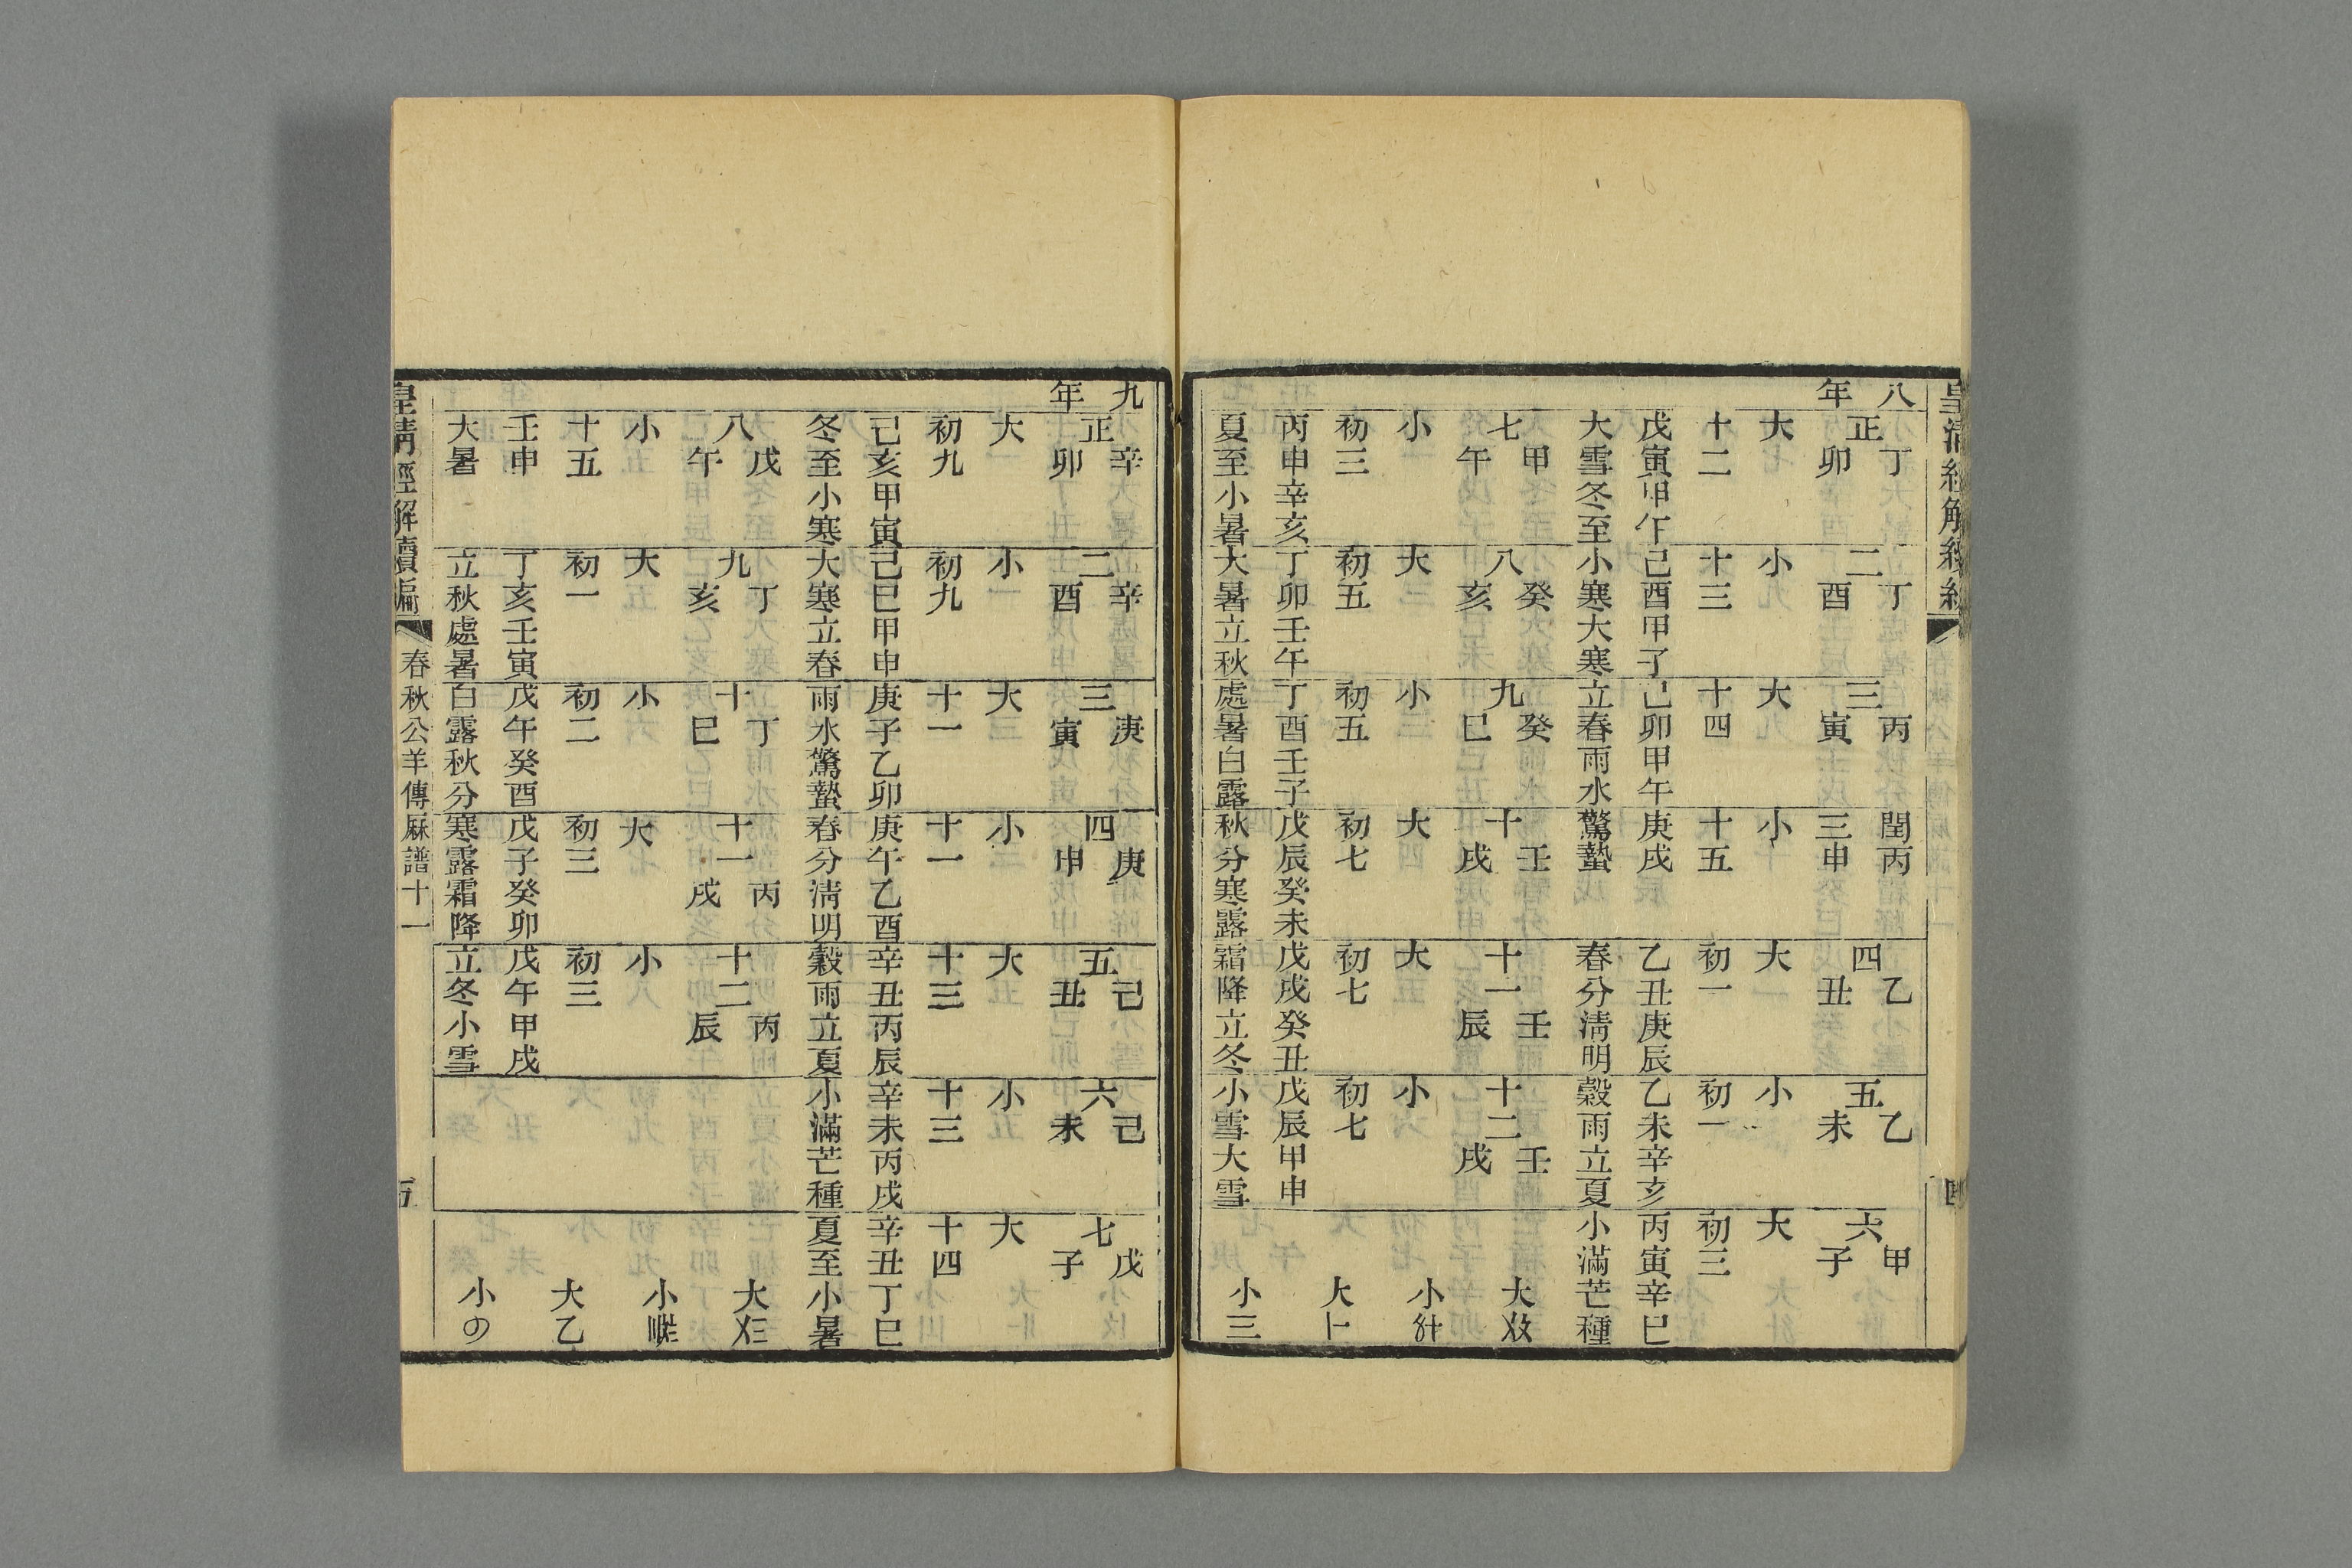 八年
正丁卯 二丁酉 三丙寅 閏三丙申 四乙丑 五乙未 六甲子
大 小 大 小 大 小 大
十二 十三 十四 十五 初一 初一 初三
戊寅甲午 己酉甲子 己卯甲午 庚戌 乙丑庚辰 乙未辛亥 丙寅辛巳
大雪冬至 小寒大寒 立春雨水 驚蟄 春分清明 穀雨立夏 小滿芒種
七甲午 八癸亥 九癸巳 十壬戌 十一壬辰 十二壬戌
小 大 小 大 大 小
初三 初五 初五 初七 初七 初七
丙申辛亥 丁卯壬午 丁酉壬子 戊辰癸未 戊戌癸丑 戊辰甲申
夏至小暑 大暑立秋 處暑白露 秋分寒露 霜降立冬 小雪大雪
大 小 大 小三
九年
正辛卯 二辛酉 三庚寅 四庚申 五己丑 六己未 七戊子
大 小 大 小 大 小 大
初九 初九 十一 十一 十三 十三 十四
己亥甲寅 己巳甲申 庚子乙卯 庚午乙酉 辛丑丙辰 辛未丙戌 辛丑丁巳
冬至小寒 大寒立春 雨水驚蟄 春分清明 穀雨立夏 小滿芒種 夏至小暑
八戊午 九丁亥 十丁巳 十一丙戌 十二丙辰
小 大 小 大 小
十五 初一 初二 初三 初三
壬申 丁亥壬寅 戊午癸酉 戊子癸卯 戊午甲戌
大暑 立秋處暑 白露秋分 寒露霜降 立冬小雪
大 小 大 小
皇清經解續編 春秋公羊傳厤譜十一 五